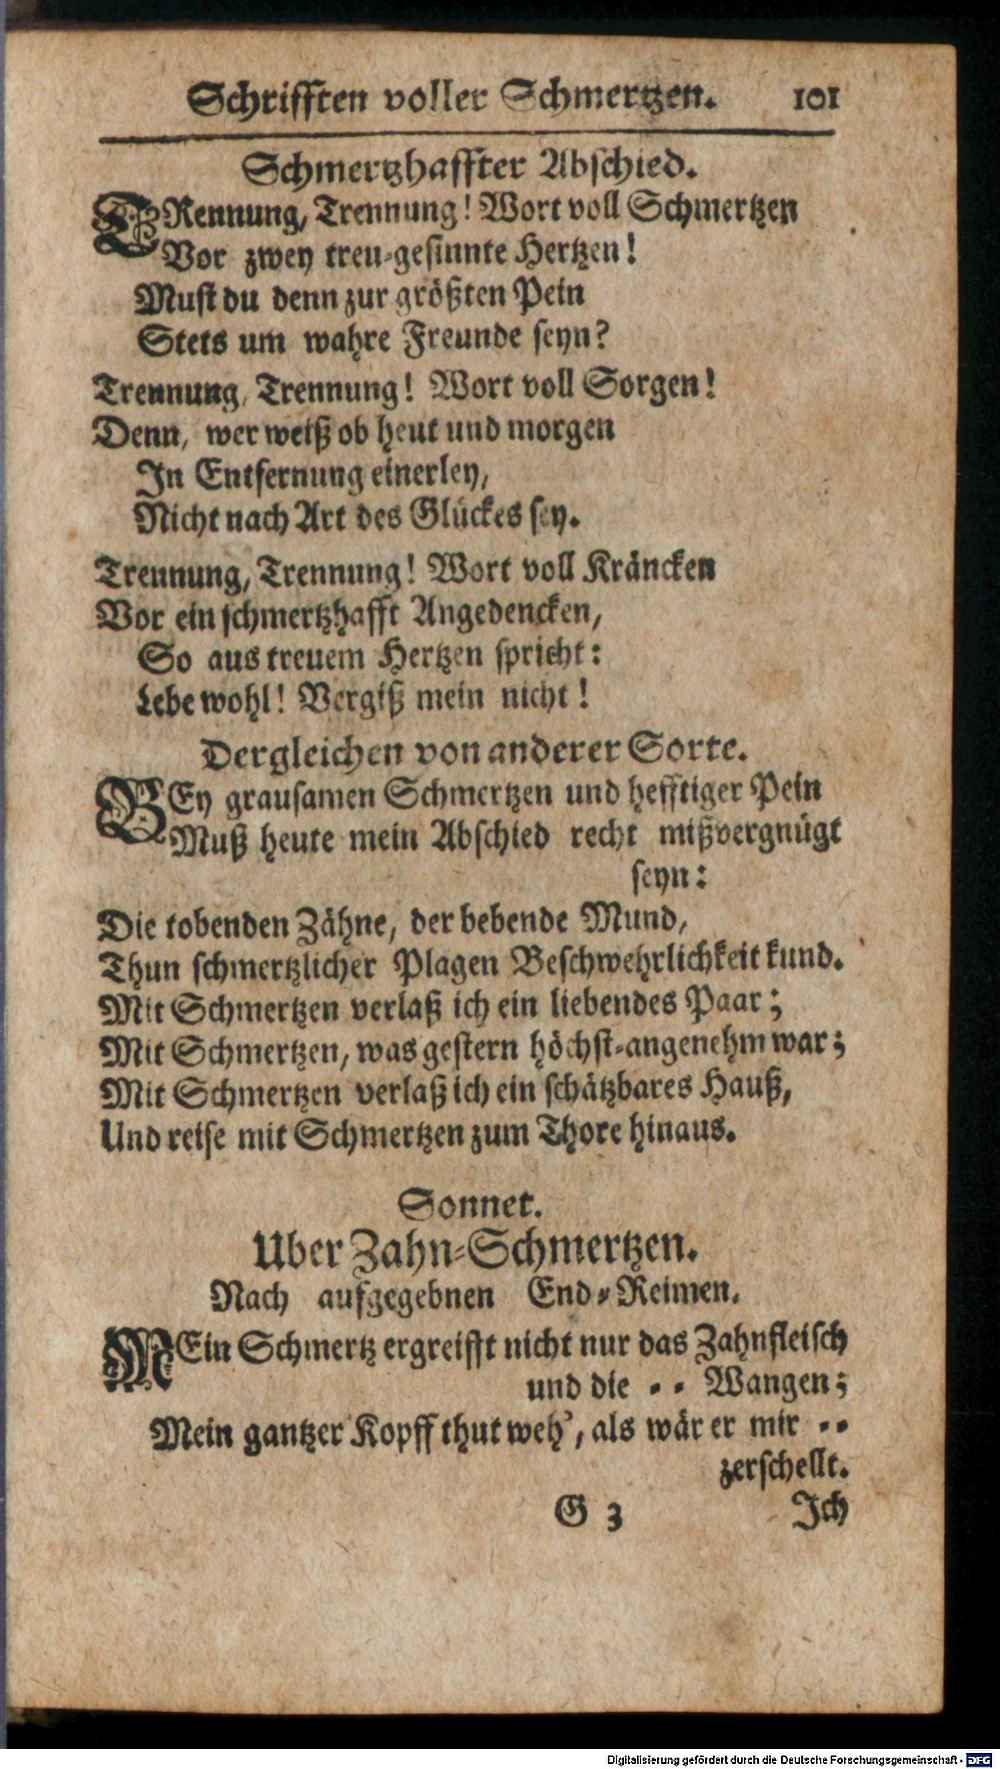 Schrifften voller Schmertzen. 101
Schmertzhaffter Abschied.
TRennung, Trennung! Wort voll Schmertzen
Vor zwey treu-gesinnte Hertzen!
Must du denn zur größten Pein
Stets um wahre Freunde seyn?
Trennung, Trennung! Wort voll Sorgen!
Denn, wer weiß ob heut und morgen
In Entfernung einerley,
Nicht nach Art des Glückes sey.
Trennung, Trennung! Wort voll Kräncken
Vor ein schmertzhafft Angedencken,
So aus treuem Hertzen spricht:
Lebe wohl! Vergiß mein nicht!
Dergleichen von anderer Sorte.
BEy grausamen Schmertzen und hefftiger Pein
Muß heute mein Abschied recht mißvergnügt
seyn:
Die tobenden Zähne, der bebende Mund,
Thun schmertzlicher Plagen Beschwehrlichkeit kund.
Mit Schmertzen verlaß ich ein liebendes Paar;
Mit Schmertzen, was gestern höchst-angenehm war;
Mit Schmertzen verlaß ich ein schätzbares Hauß,
Und reise mit Schmertzen zum Thore hinaus.
Sonnet.
Uber Zahn-Schmertzen.
Nach aufgegebnen End-Reimen.
MEin Schmertz ergreifft nicht nur das Zahnfleisch
und die - - Wangen;
Mein gantzer Kopff thut weh', als wär er mir - -
zerschellt.
G 3 Ich
Digitalisierung gefördert durch die Deutsche Forschungsgemeinschaft - DFG